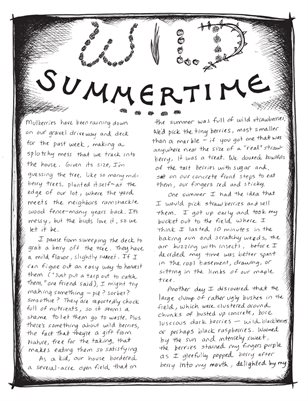 WILD
SUMMERTIME
Mulberries have been raining down
on our gravel driveway and deck
for the past week, making a
splotchy mess that we track into
the house. Given its size, I'm
guessing the tree, like so many mul-
berry trees, planted itself at the
edge of our lot, where the yard
meets the neighbors ramshackle
wood fence many years back. It's
messy, but the birds love it, so we
let it be.
I pause from sweeping the deck to
grab a berry off the tree. They have
a mild flavor, slightly sweet. If I
can figure out an easy way to harvest
them ("Just put a tarp out to catch
them," one friend said), I might try
making something — pie? Sorbet?
Smoothie? They are reportedly chock
full of nutrients, so it seems a
shame to let them go to waste. Plus
there's something about wild berries,
the fact that they're a gift from
nature, free for the taking, that
makes eating them so satisfying.
As a kid, our house bordered
a several-acre, open field that in
the summer was full of wild strawberries.
We'd pick the tiny berries, most smaller
than a marble - if you got one that was
anywhere near the size of a "real" straw-
berry, it was a treat. We doused bowlfuls
of the tart berries with sugar and,
sat on our concrete front steps to eat
them, our fingers red and sticky.
One summer I had the idea that
I would pick strawberries and sell
them. I got up early and took my
bucket out to the field, where I
think I lasted 10 minutes in the
baking sun and scratchy weeds, the
air buzzing with insects, before I
decided my time was better spent
in the cool basement, drawing, or
sitting in the limbs of our maple
tree.
Another day I discovered that the
large clump of rather ugly bushes in the
field, which were clustered around
chunks of busted up concrete, bore
luscious dark berries — wild blackberries
or perhaps black raspberries. Warmed
by the sun and intensely sweet,
the berries stained my fingers purple
as I gleefully popped berry after
berry into my mouth, delighted by my